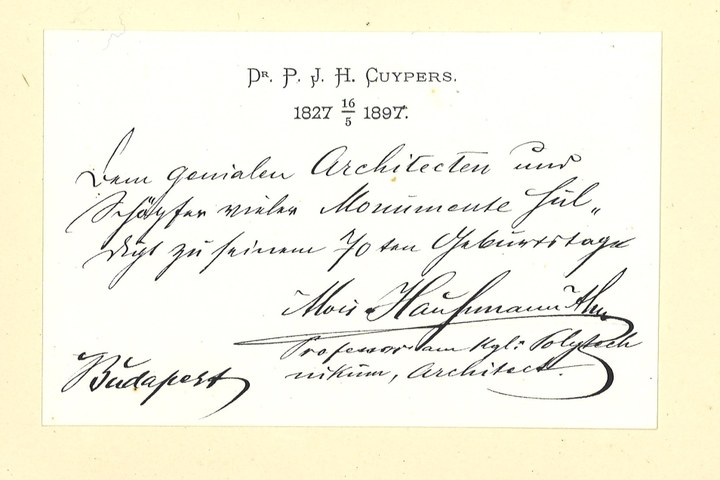 Dr. P. J. H. Cuypers.
1827 16/5 1897.
Dem genialen Architecten und
Schöpfer vieler Monumente hul„
digt zu seinem 70ten Geburtstage
Alois Hauszmann
Professor am Kgl: Polytech
nikum, Architect.
Budapest